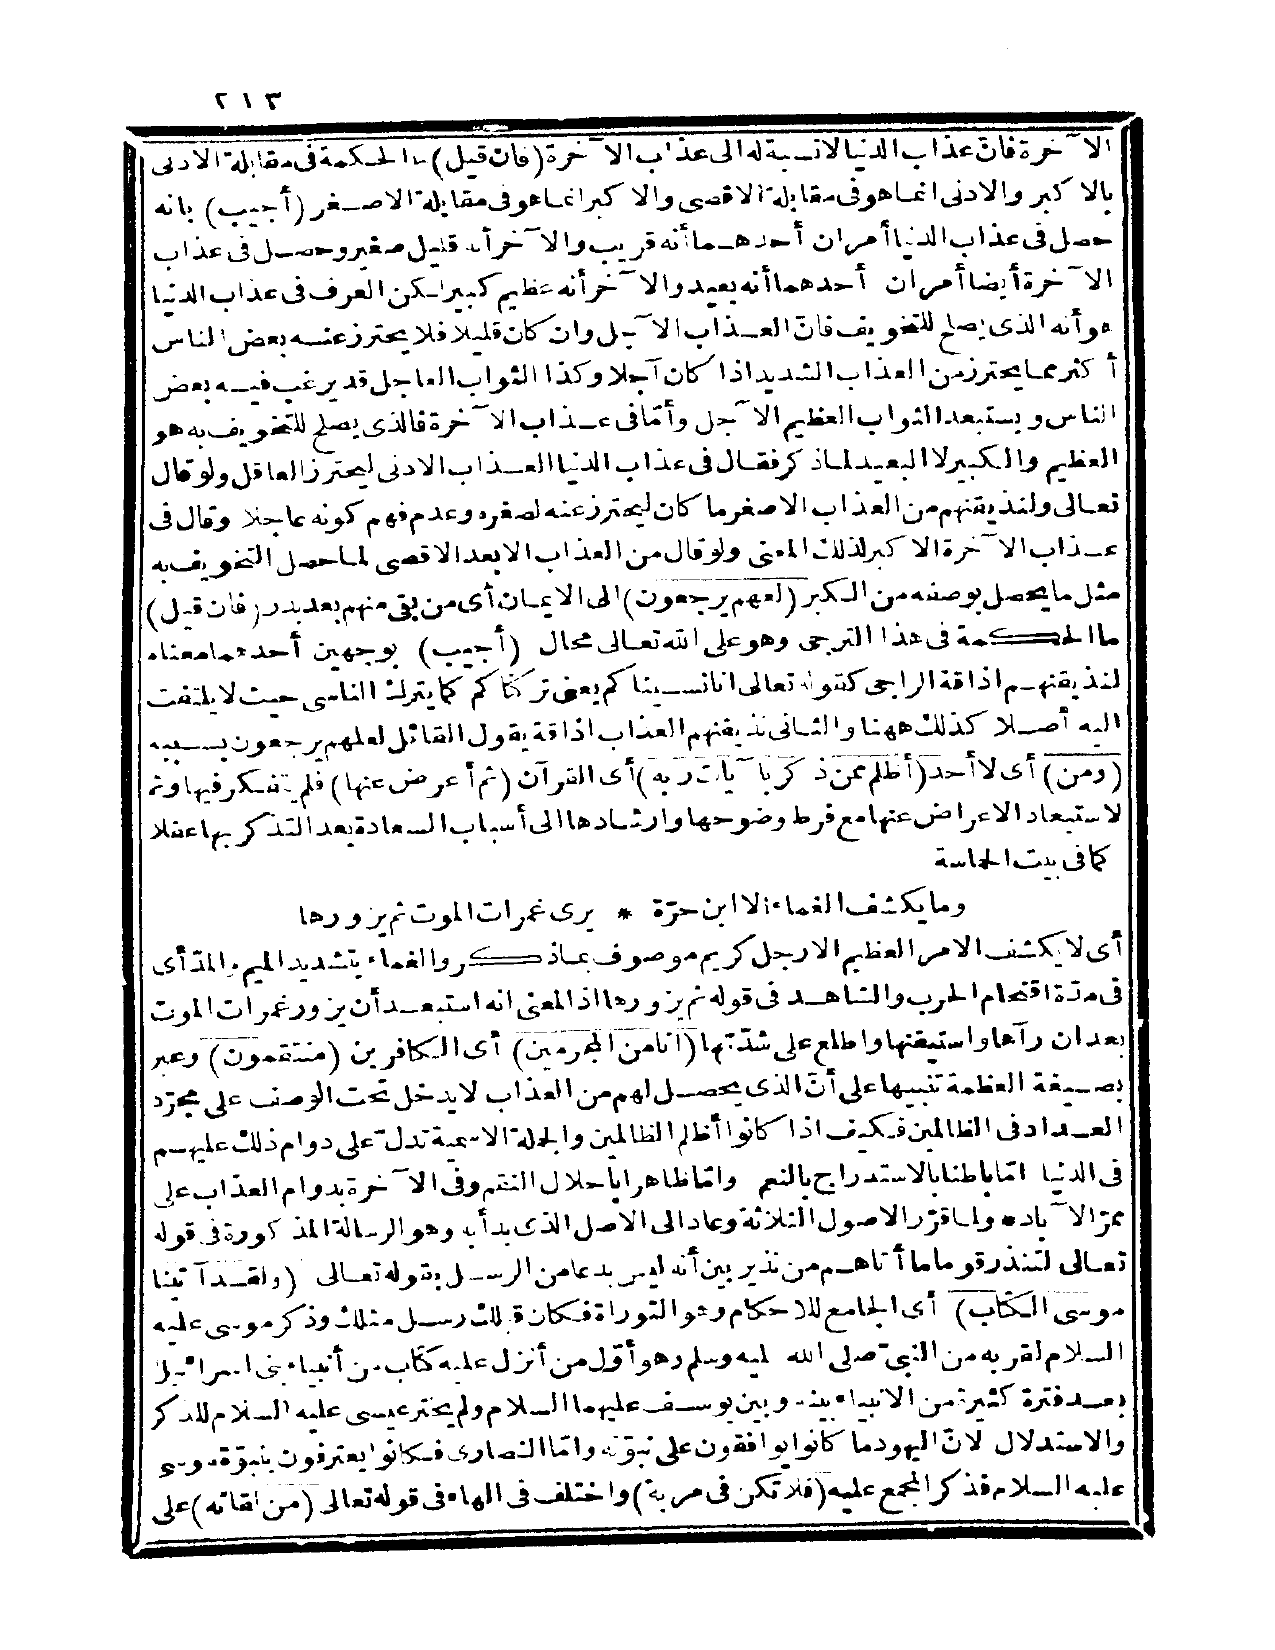 ٢١٣
الآخرة فان عذاب الدنيا لا نسبة له الى عذاب الآخرة (فان قيل) ما الحكمة فى مقابلة الادنى
بالاكبر والادنى انما هو فى مقابلة الاقصى والاكبر انما هو فى مقابلة الاصغر (أجيب) بانه
حصل فى عذاب الدنيا أمران أحدهما أنه قريب والآخر أنه قليل صغير وحصل فى عذاب
الآخرة أيضا أمران أحدهما أنه بعيد والآخر أنه عظيم كبير لكن العرف فى عذاب الدنيا
هو أنه الذى يصلح للتخويف فان العذاب الآجل وان كان قليلا فلا يحترز عنه بعض الناس
أكثر مما يحترز من العذاب الشديد اذا كان آجلا وكذا الثواب العاجل قد يرغب فيه بعض
الناس ويستبعد الثواب العظيم الآجل وأما فى عذاب الآخرة فالذى يصلح للتخويف به هو
العظيم والكبير لا البعيد لما ذكر فقال فى عذاب الدنيا العذاب الادنى ليحترز العاقل ولو قال
تعالى ولنذيقنهم من العذاب الاصغر ما كان ليحترز عنه لصغره وعدم فهم كونه عاجلا وقال فى
عذاب الآخرة الاكبر لذلك المعنى ولو قال من العذاب الابعد الاقصى لما حصل التخويف به
مثل ما يحصل بوصفه من الكبر (لعلهم يرجعون) الى الايمان أى من بقى منهم بعد بدر (فان قيل)
ما الحكمة فى هذا الترجى وهو على الله تعالى محال (أجيب) بوجهين أحدهما معناه
لنذيقنهم اذاقة الراجى كقوله تعالى انا نسيناكم يعنى تركناكم كما يترك الناسى حيث لا يلتفت
اليه أصلا كذلك ههنا والثانى نذيقنهم العذاب اذاقة يقول القائل لعلهم يرجعون بسببه
(ومن) أى لا أحد (أظلم ممن ذكر بآيات ربه) أى القرآن (ثم أعرض عنها) فلم يتفكر فيها وثم
لاستبعاد الاعراض عنها مع فرط وضوحها وارشادها الى أسباب السعادة بعد التذكر بها عقلا
كما فى بيت الحماسة
وما يكشف الغماء الا ابن حرّة * يرى غمرات الموت ثم يزورها
أى لا يكشف الامر العظيم الا رجل كريم موصوف بما ذكر والغماء بتشديد الميم والمدّ أى
فى مدّة اقتحام الحرب والشاهد فى قوله ثم يزورها اذ المعنى انه استبعد أن يزور غمرات الموت
بعد ان رآها واستيقنها واطلع على شدّتها (انا من المجرمين) أى الكافرين (منتقمون) وعبر
بصيغة العظمة تنبيها على أنّ الذى يحصل لهم من العذاب لا يدخل تحت الوصف على مجرّد
العداد فى الظالمين فكيف اذا كانوا أظلم الظالمين والجملة الاسمية تدل على دوام ذلك عليهم
فى الدنيا امّا باطنا بالاستدراج بالنعم وامّا ظاهرا باحلال النقم وفى الآخرة بدوام العذاب على
ممرّ الآباد * ولما قرّر الاصول الثلاثة وعاد الى الاصل الذى بدأ به وهو الرسالة المذكورة فى قوله
تعالى لتنذر قوما ما أتاهم من نذير بين أنه ليس بدعا من الرسل بقوله تعالى (ولقد آتينا
موسى الكتاب) أى الجامع للاحكام وهو التوراة فكان قبلك رسل مثلك وذكر موسى عليه
السلام لقربه من النبىّ صلى الله عليه وسلم وهو أوّل من أنزل عليه كتاب من أنبياء بنى اسرائيل
بعد فترة كثيرة من الانبياء بينه وبين يوسف عليهما السلام ولم يختر عيسى عليه السلام للذكر
والاستدلال لانّ اليهود ما كانوا يوافقون على نبوّته وامّا النصارى فكانوا يعترفون بنبوّة موسى
عليه السلام فذكر المجمع عليه (فلا تكن فى مرية) واختلف فى الهاء فى قوله تعالى (من لقائه) على